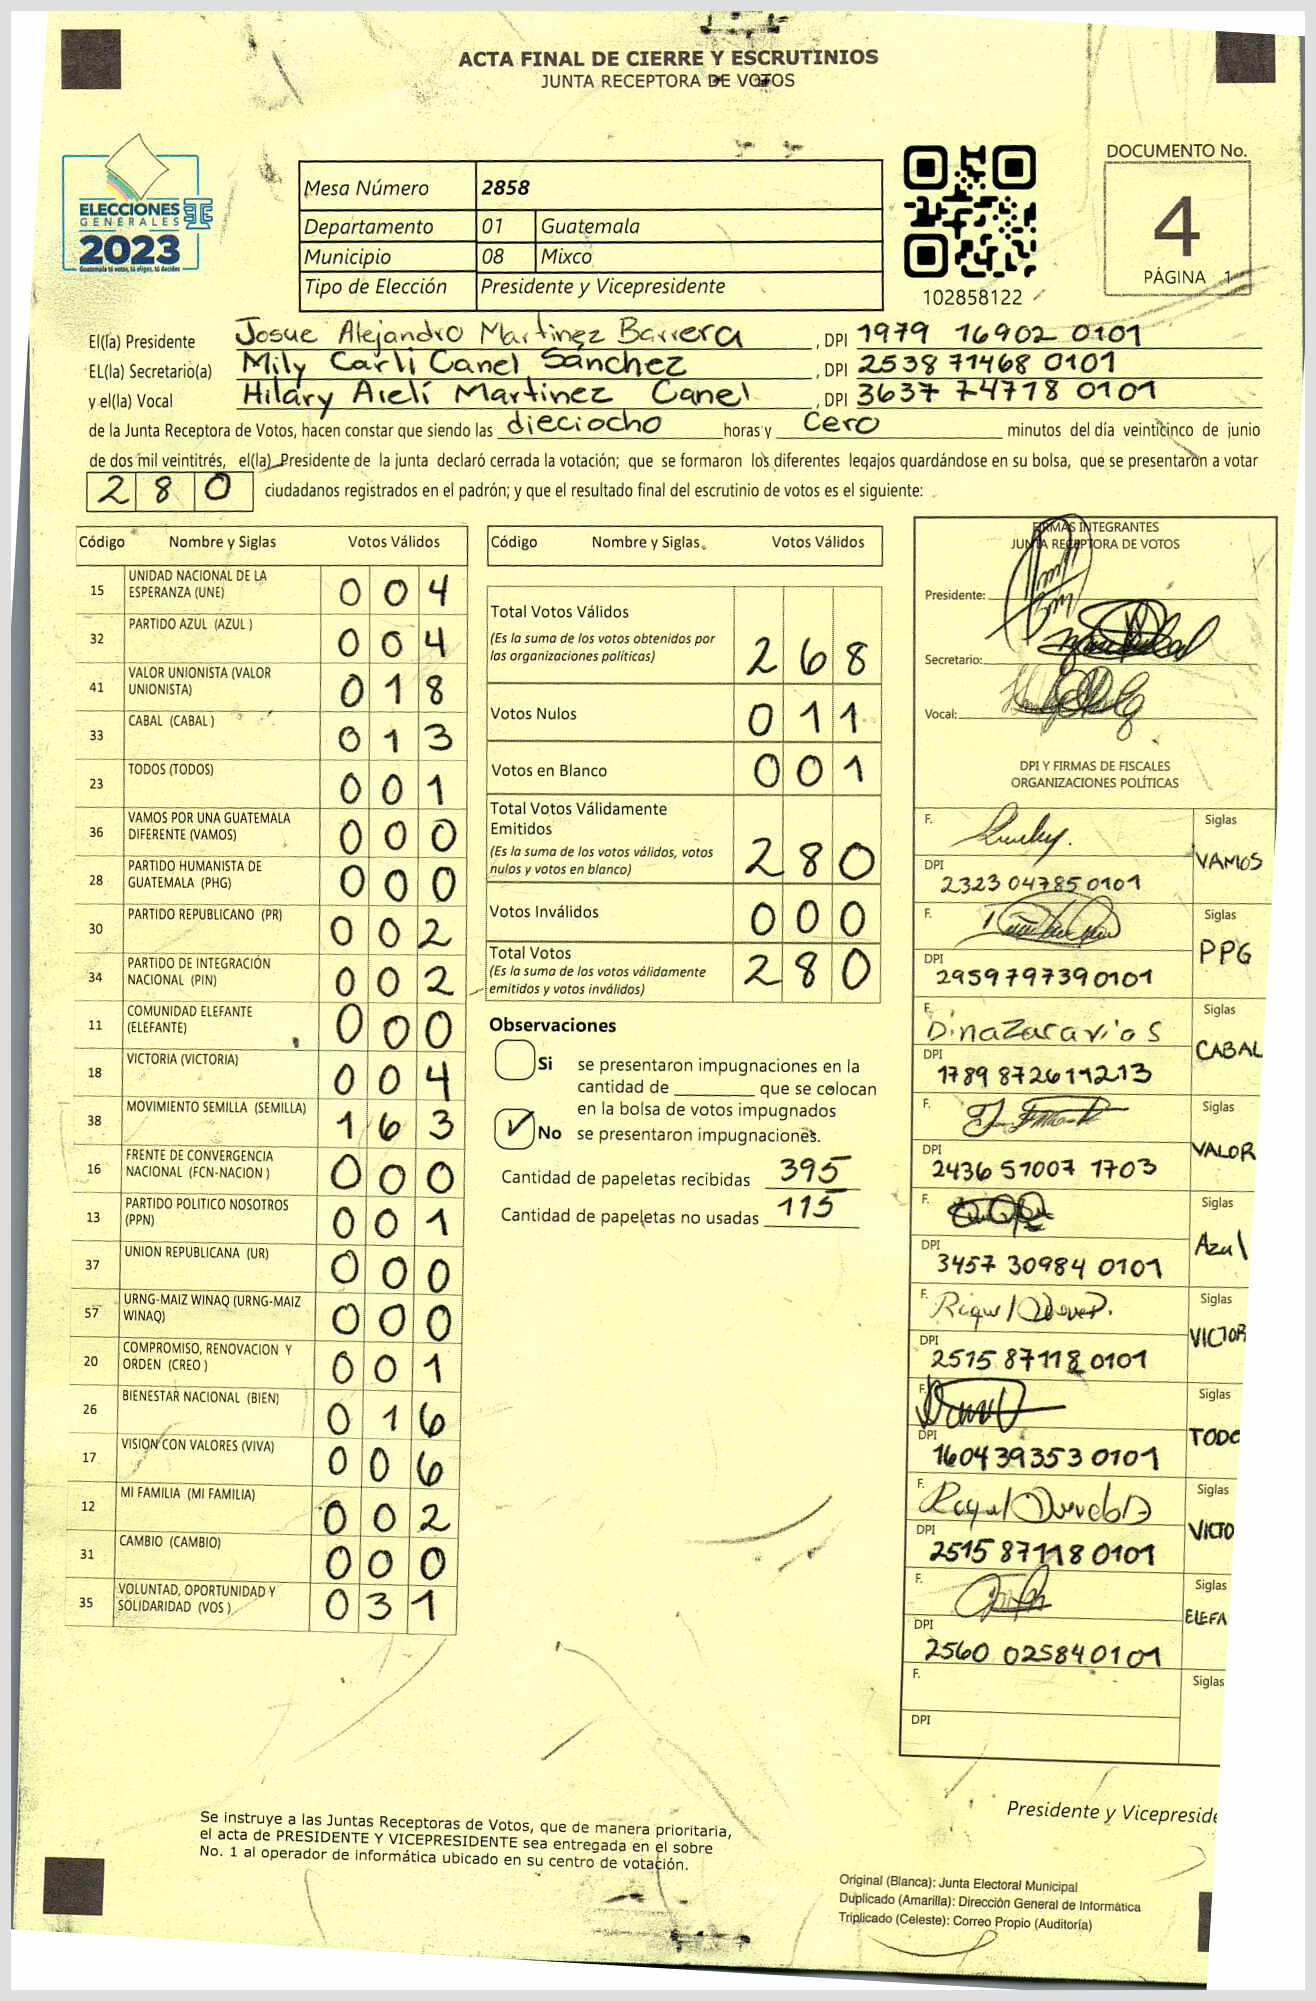 ACTA FINAL DE CIERRE Y ESCRUTINIOS
JUNTA RECEPTORA DE VOTOS
ELECCIONES
GENERALES
2023
Guatemala tú votas, tú eliges, tú decides
Mesa Número 2858
Departamento 01 Guatemala
Municipio 08 Mixco
Tipo de Elección Presidente y Vicepresidente
102858122
DOCUMENTO No.
4
PÁGINA 1
El(la) Presidente Josue Alejandro Martinez Barrera , DPI 1979 16902 0101
EL(la) Secretario(a) Mily Carli Canel Sánchez , DPI 2538 71468 0101
y el(la) Vocal Hilary Arelí Martinez Canel , DPI 3637 74718 0101
de la Junta Receptora de Votos, hacen constar que siendo las dieciocho horas y Cero minutos del día veinticinco de junio
de dos mil veintitrés, el(la) Presidente de la junta declaró cerrada la votación; que se formaron los diferentes legajos guardándose en su bolsa, que se presentaron a votar
280 ciudadanos registrados en el padrón; y que el resultado final del escrutinio de votos es el siguiente:
Código Nombre y Siglas Votos Válidos
15 UNIDAD NACIONAL DE LA ESPERANZA (UNE) 004
32 PARTIDO AZUL (AZUL ) 004
41 VALOR UNIONISTA (VALOR UNIONISTA) 018
33 CABAL (CABAL ) 013
23 TODOS (TODOS) 001
36 VAMOS POR UNA GUATEMALA DIFERENTE (VAMOS) 000
28 PARTIDO HUMANISTA DE GUATEMALA (PHG) 000
30 PARTIDO REPUBLICANO (PR) 002
34 PARTIDO DE INTEGRACIÓN NACIONAL (PIN) 002
11 COMUNIDAD ELEFANTE (ELEFANTE) 000
18 VICTORIA (VICTORIA) 004
38 MOVIMIENTO SEMILLA (SEMILLA) 163
16 FRENTE DE CONVERGENCIA NACIONAL (FCN-NACION ) 000
13 PARTIDO POLITICO NOSOTROS (PPN) 001
37 UNION REPUBLICANA (UR) 000
57 URNG-MAIZ WINAQ (URNG-MAIZ WINAQ) 000
20 COMPROMISO, RENOVACION Y ORDEN (CREO ) 001
26 BIENESTAR NACIONAL (BIEN) 016
17 VISION CON VALORES (VIVA) 006
12 MI FAMILIA (MI FAMILIA) 002
31 CAMBIO (CAMBIO) 000
35 VOLUNTAD, OPORTUNIDAD Y SOLIDARIDAD (VOS ) 031
Código Nombre y Siglas Votos Válidos
Total Votos Válidos
(Es la suma de los votos obtenidos por
las organizaciones políticas) 268
Votos Nulos 011
Votos en Blanco 001
Total Votos Válidamente
Emitidos
(Es la suma de los votos válidos, votos
nulos y votos en blanco) 280
Votos Inválidos 000
Total Votos
(Es la suma de los votos válidamente
emitidos y votos inválidos) 280
Observaciones
Si se presentaron impugnaciones en la
cantidad de ________ que se colocan
en la bolsa de votos impugnados
No se presentaron impugnaciones.
Cantidad de papeletas recibidas 395
Cantidad de papeletas no usadas 115
FIRMAS INTEGRANTES
JUNTA RECEPTORA DE VOTOS
Presidente:
Secretario:
Vocal:
DPI Y FIRMAS DE FISCALES
ORGANIZACIONES POLÍTICAS
F. Siglas VAMOS
DPI 2323 04785 0101
F. Siglas PPG
DPI 2959797390101
F. Siglas CABAL
DPI 1789 872611213
F. Siglas VALOR
DPI 2436 51007 1703
F. Siglas Azul
DPI 3457 30984 0101
F. Siglas VICTOR
DPI 2515 87118 0101
F. Siglas TODO
DPI 1604 39353 0101
F. Siglas VICTO
DPI 2515 87118 0101
F. Siglas ELEFA
DPI 2560 02584 0101
F. Siglas
DPI
Presidente y Vicepreside
Se instruye a las Juntas Receptoras de Votos, que de manera prioritaria,
el acta de PRESIDENTE Y VICEPRESIDENTE sea entregada en el sobre
No. 1 al operador de informática ubicado en su centro de votación.
Original (Blanca): Junta Electoral Municipal
Duplicado (Amarilla): Dirección General de Informática
Triplicado (Celeste): Correo Propio (Auditoría)